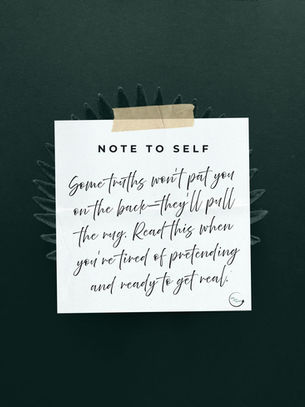 NOTE TO SELF
Some truths won't pat you
on the back—they'll pull
the rug. Read this when
you're tired of pretending
and ready to get real.